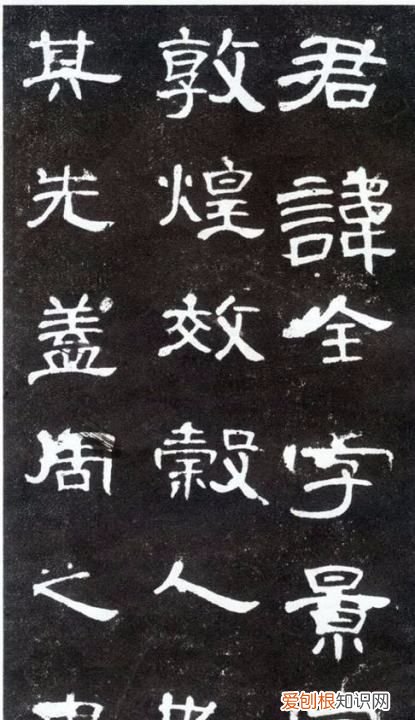 君諱全字景
敦煌效穀人
其先盖周之
爱刨根知识网